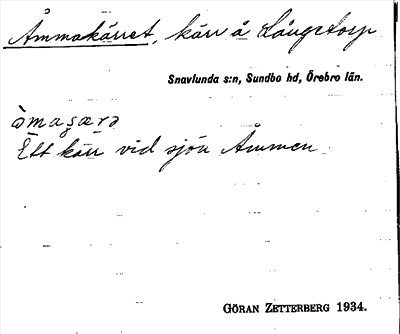 Åmmakärret, kärr å Långstorp
Snavlunda s:n, Sundbo hd, Örebro län.
Ett kärr vid sjön Åmmen
GÖRAN ZETTERBERG 1934.